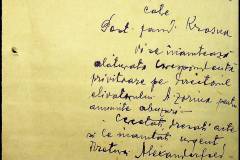 catre
Post. jand. Krasna
Vi se inainteaza
alaturata corespondenta
privitoare pe directorul
elevatorului A. Zorina pentru
anumite abuzuri
Cercetati, dresati acte
si le inaintati urgent
Pretura Alexanderfeld